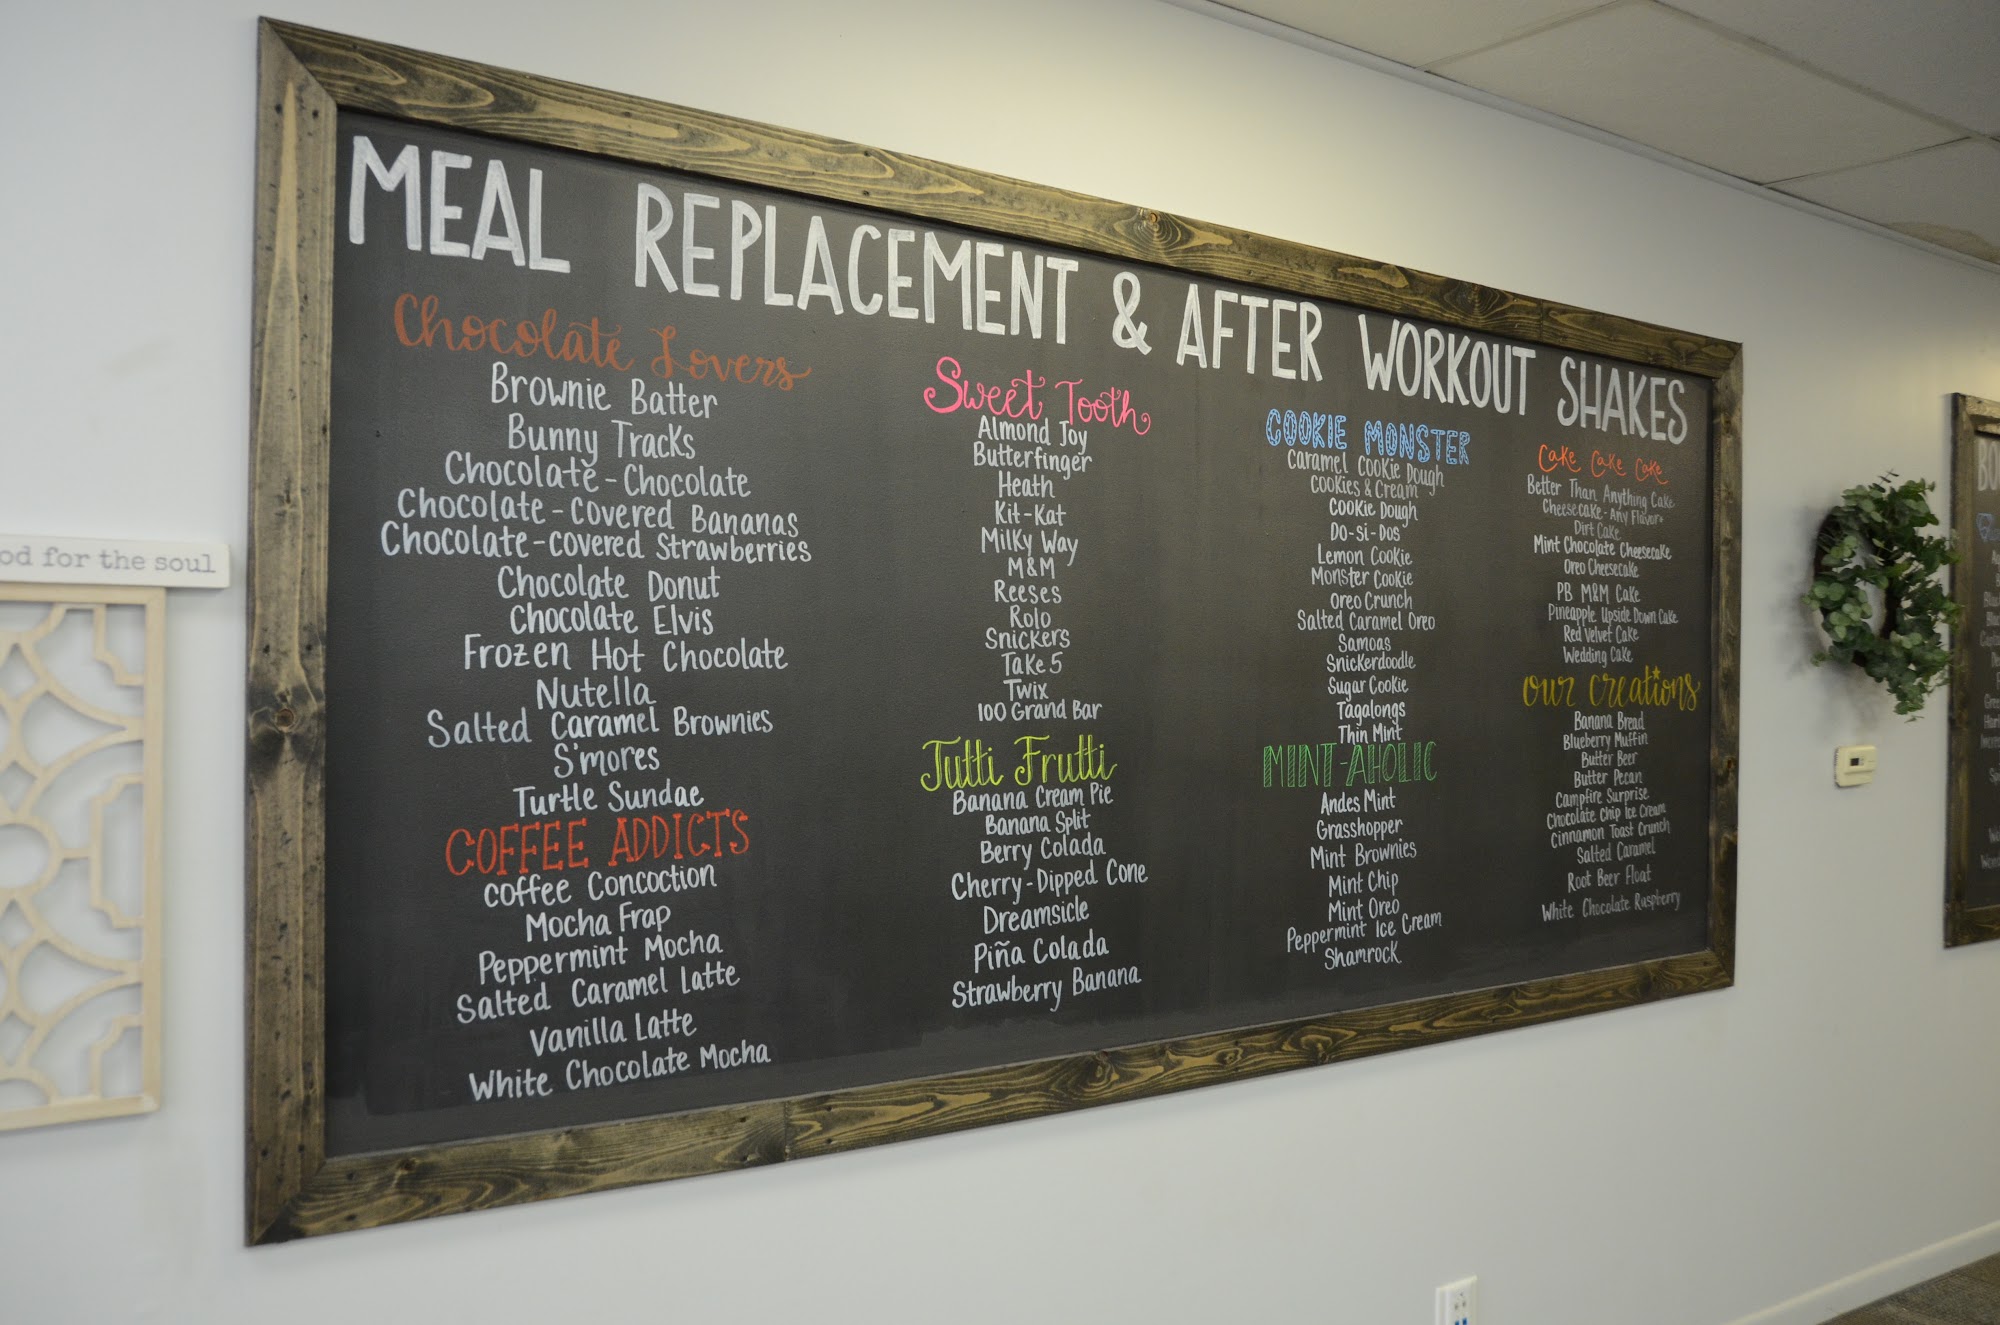 od for the soul
MEAL REPLACEMENT & AFTER WORKOUT SHAKES
Chocolate Lovers
Brownie Batter
Bunny Tracks
Chocolate-Chocolate
Chocolate-Covered Bananas
Chocolate-Covered Strawberries
Chocolate Donut
Chocolate Elvis
Frozen Hot Chocolate
Nutella
Salted Caramel Brownies
S'mores
Turtle Sundae
COFFEE ADDICTS
Coffee Concoction
Mocha Frap
Peppermint Mocha
Salted Caramel Latte
Vanilla Latte
White Chocolate Mocha
Sweet Tooth
Almond Joy
Butterfinger
Heath
Kit-Kat
Milky Way
M&M
Reeses
Rolo
Snickers
Take 5
Twix
100 Grand Bar
Tutti Frutti
Banana Cream Pie
Banana Split
Berry Colada
Cherry-Dipped Cone
Dreamsicle
Piña Colada
Strawberry Banana
COOKIE MONSTER
Caramel Cookie Dough
Cookies & Cream
Cookie Dough
Do-Si-Dos
Lemon Cookie
Monster Cookie
Oreo Crunch
Salted Caramel Oreo
Samoas
Snickerdoodle
Sugar Cookie
Tagalongs
Thin Mint
MINT-AHOLIC
Andes Mint
Grasshopper
Mint Brownies
Mint Chip
Mint Oreo
Peppermint Ice Cream
Shamrock
Cake Cake Cake
Better Than Anything Cake
Cheesecake-Any Flavor
Dirt Cake
Mint Chocolate Cheesecake
Oreo Cheesecake
PB M&M Cake
Pineapple Upside Down Cake
Red Velvet Cake
Wedding Cake
our creations
Banana Bread
Blueberry Muffin
Butter Beer
Butter Pecan
Campfire Surprise
Chocolate Chip Ice Cream
Cinnamon Toast Crunch
Salted Caramel
Root Beer Float
White Chocolate Raspberry